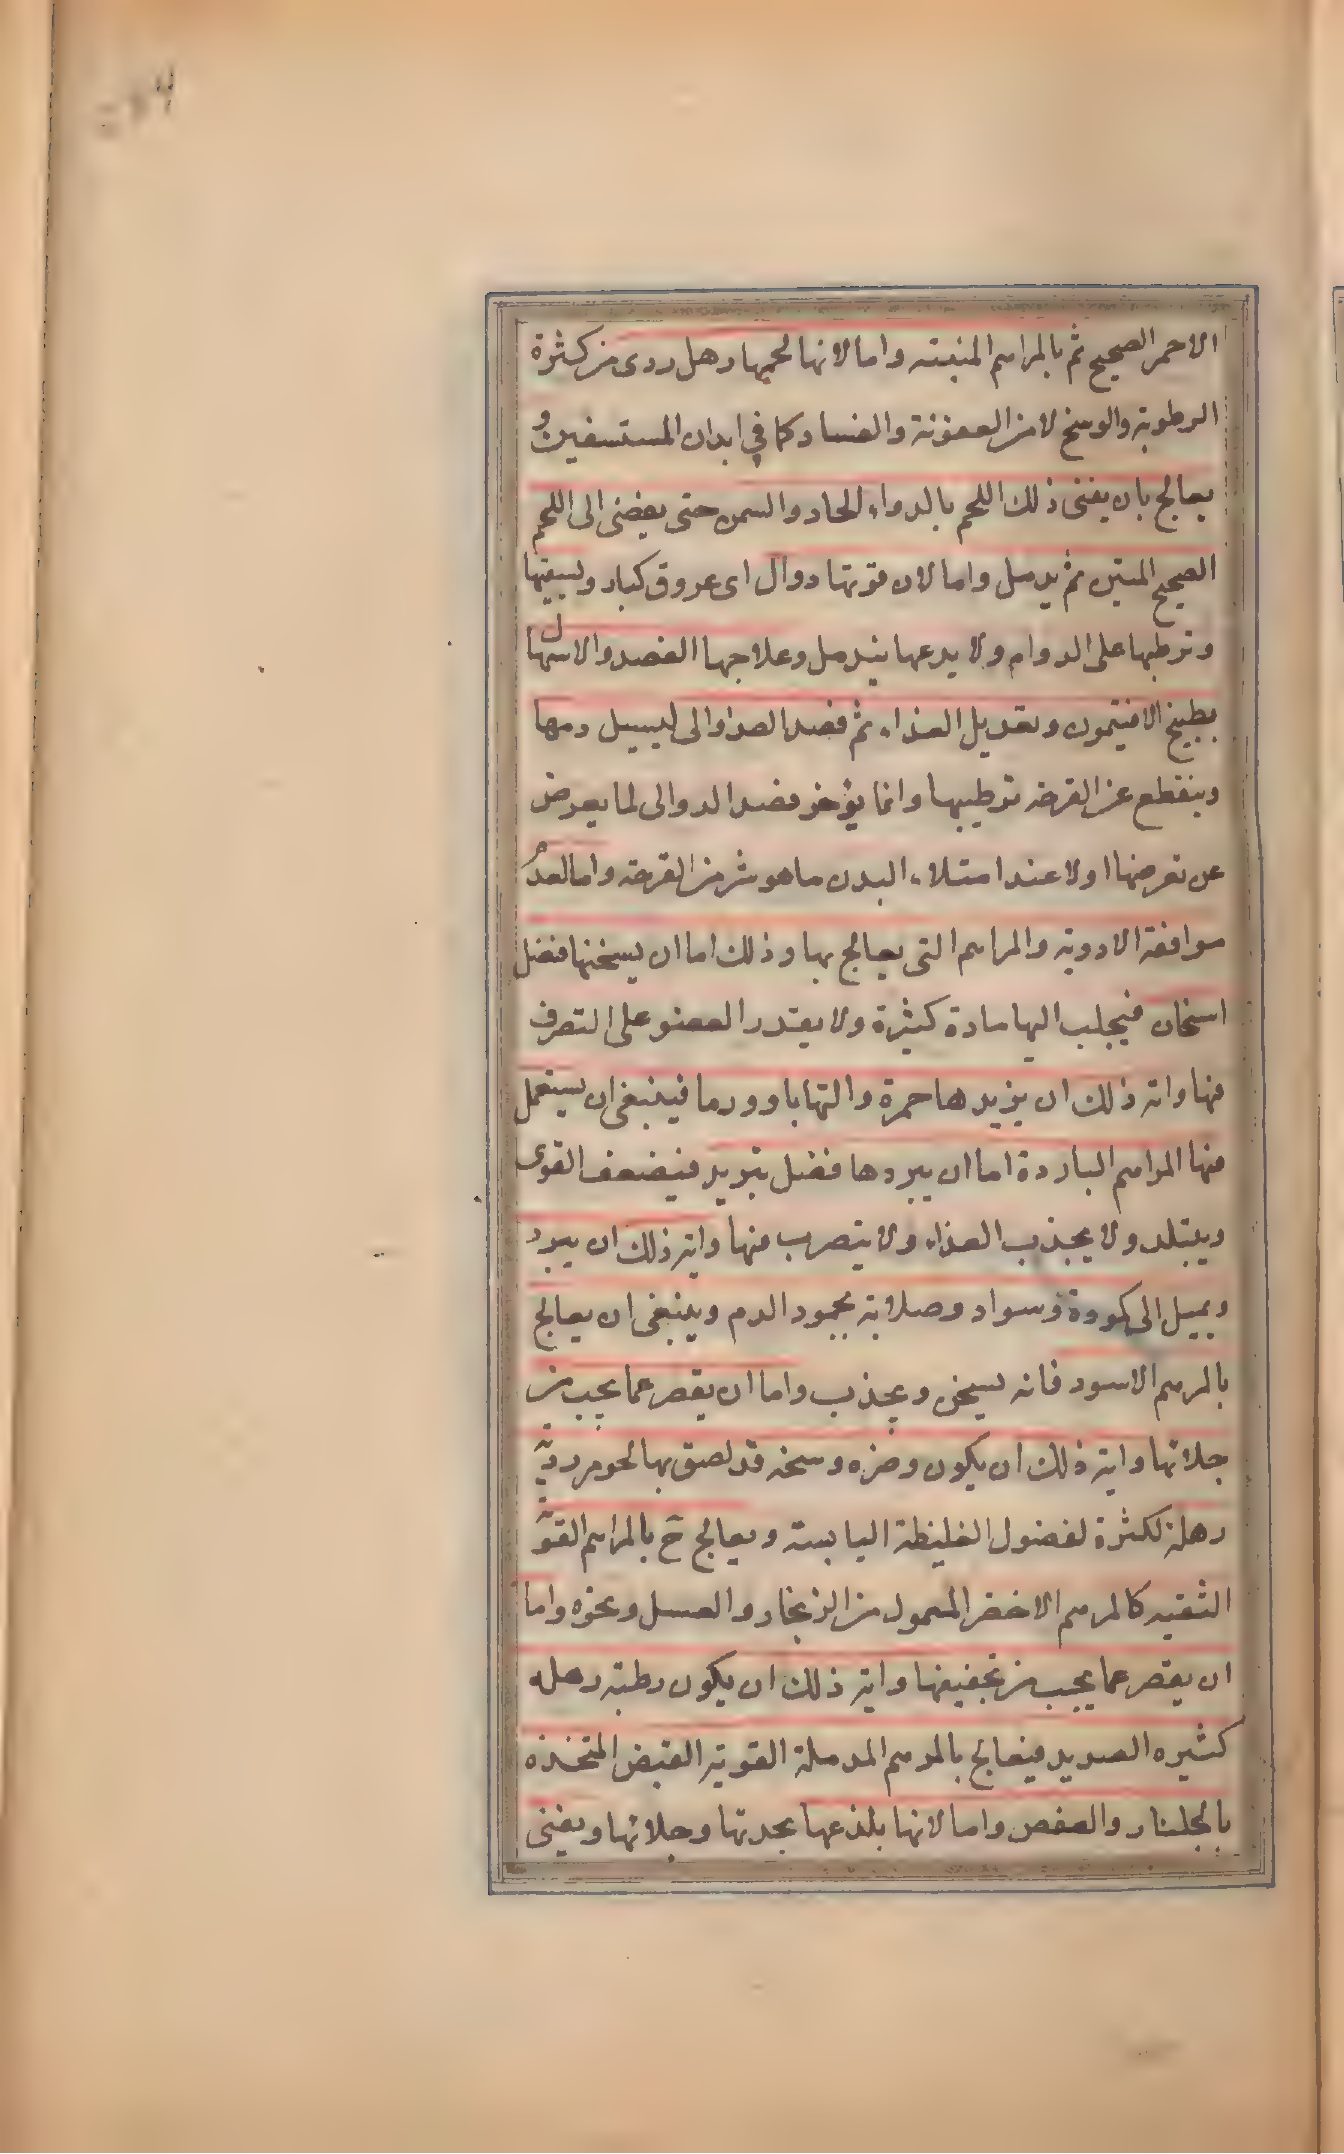 الاحمر الصحيح ثم بالمراهم المنبتة واما لانها لحمها رهل ردى من كثرة
الرطوبة والوسخ لا من العفونة والفساد كما في ابدان المستسقين و
يعالج بان يفنى ذلك اللحم بالدواء الحاد والسمن حتى يفضى الى اللحم
الصحيح المتين ثم يدمل واما لان فوقها دوال اى عروق كبار ويسقيها
وترطبها على الدوام ولا يدعها يندمل وعلاجها الفصد والاسهال
بطبيخ الافتيمون وتعديل الغذاء ثم فصد الدوالى ليسيل دمها
وينقطع عن القرحة ترطيبها وانما يؤخر فصد الدوالى لما يعرض
عن تعرضها اولا عند امتلاء البدن ما هو شر من القرحة واما لعدم
موافقة الادوية والمراهم التى يعالج بها وذلك اما ان يسخنها فضل
اسخان فيجلب اليها مادة كثيرة ولا يقتدر العضو على التصرف
فيها واية ذلك ان يزيدها حمرة والتهابا وورما فينبغى ان يستعمل
فيها المراهم الباردة اما ان يبردها فضل تبريد فيضعف القوى
ويتبلد ولا يجذب الغذاء ولا يتصرف فيها واية ذلك ان يبرد
ويميل الى كمودة وسواد وصلابة بجمود الدم وينبغى ان يعالج
بالمرهم الاسود فانه يسخن ويجذب واما ان يقصر عما يجب من
جلائها واية ذلك ان يكون وضره وسخة قد لصق بها لحوم ردية
رهلة لكثرة لفضول الغليظة اليابسة ويعالج ح بالمراهم القوية
التنقية كالمرهم الاخضر المعمول من الزنجار والعسل ونحوه واما
ان يقصر عما يجب من تجفيفها واية ذلك ان يكون رطبة رهله
كثيره الصديد فيعالج بالمرهم المدملة القوية القبض المتخذه
بالجلنار والعفص واما لانها يلذعها بحدتها وجلائها ويفنى